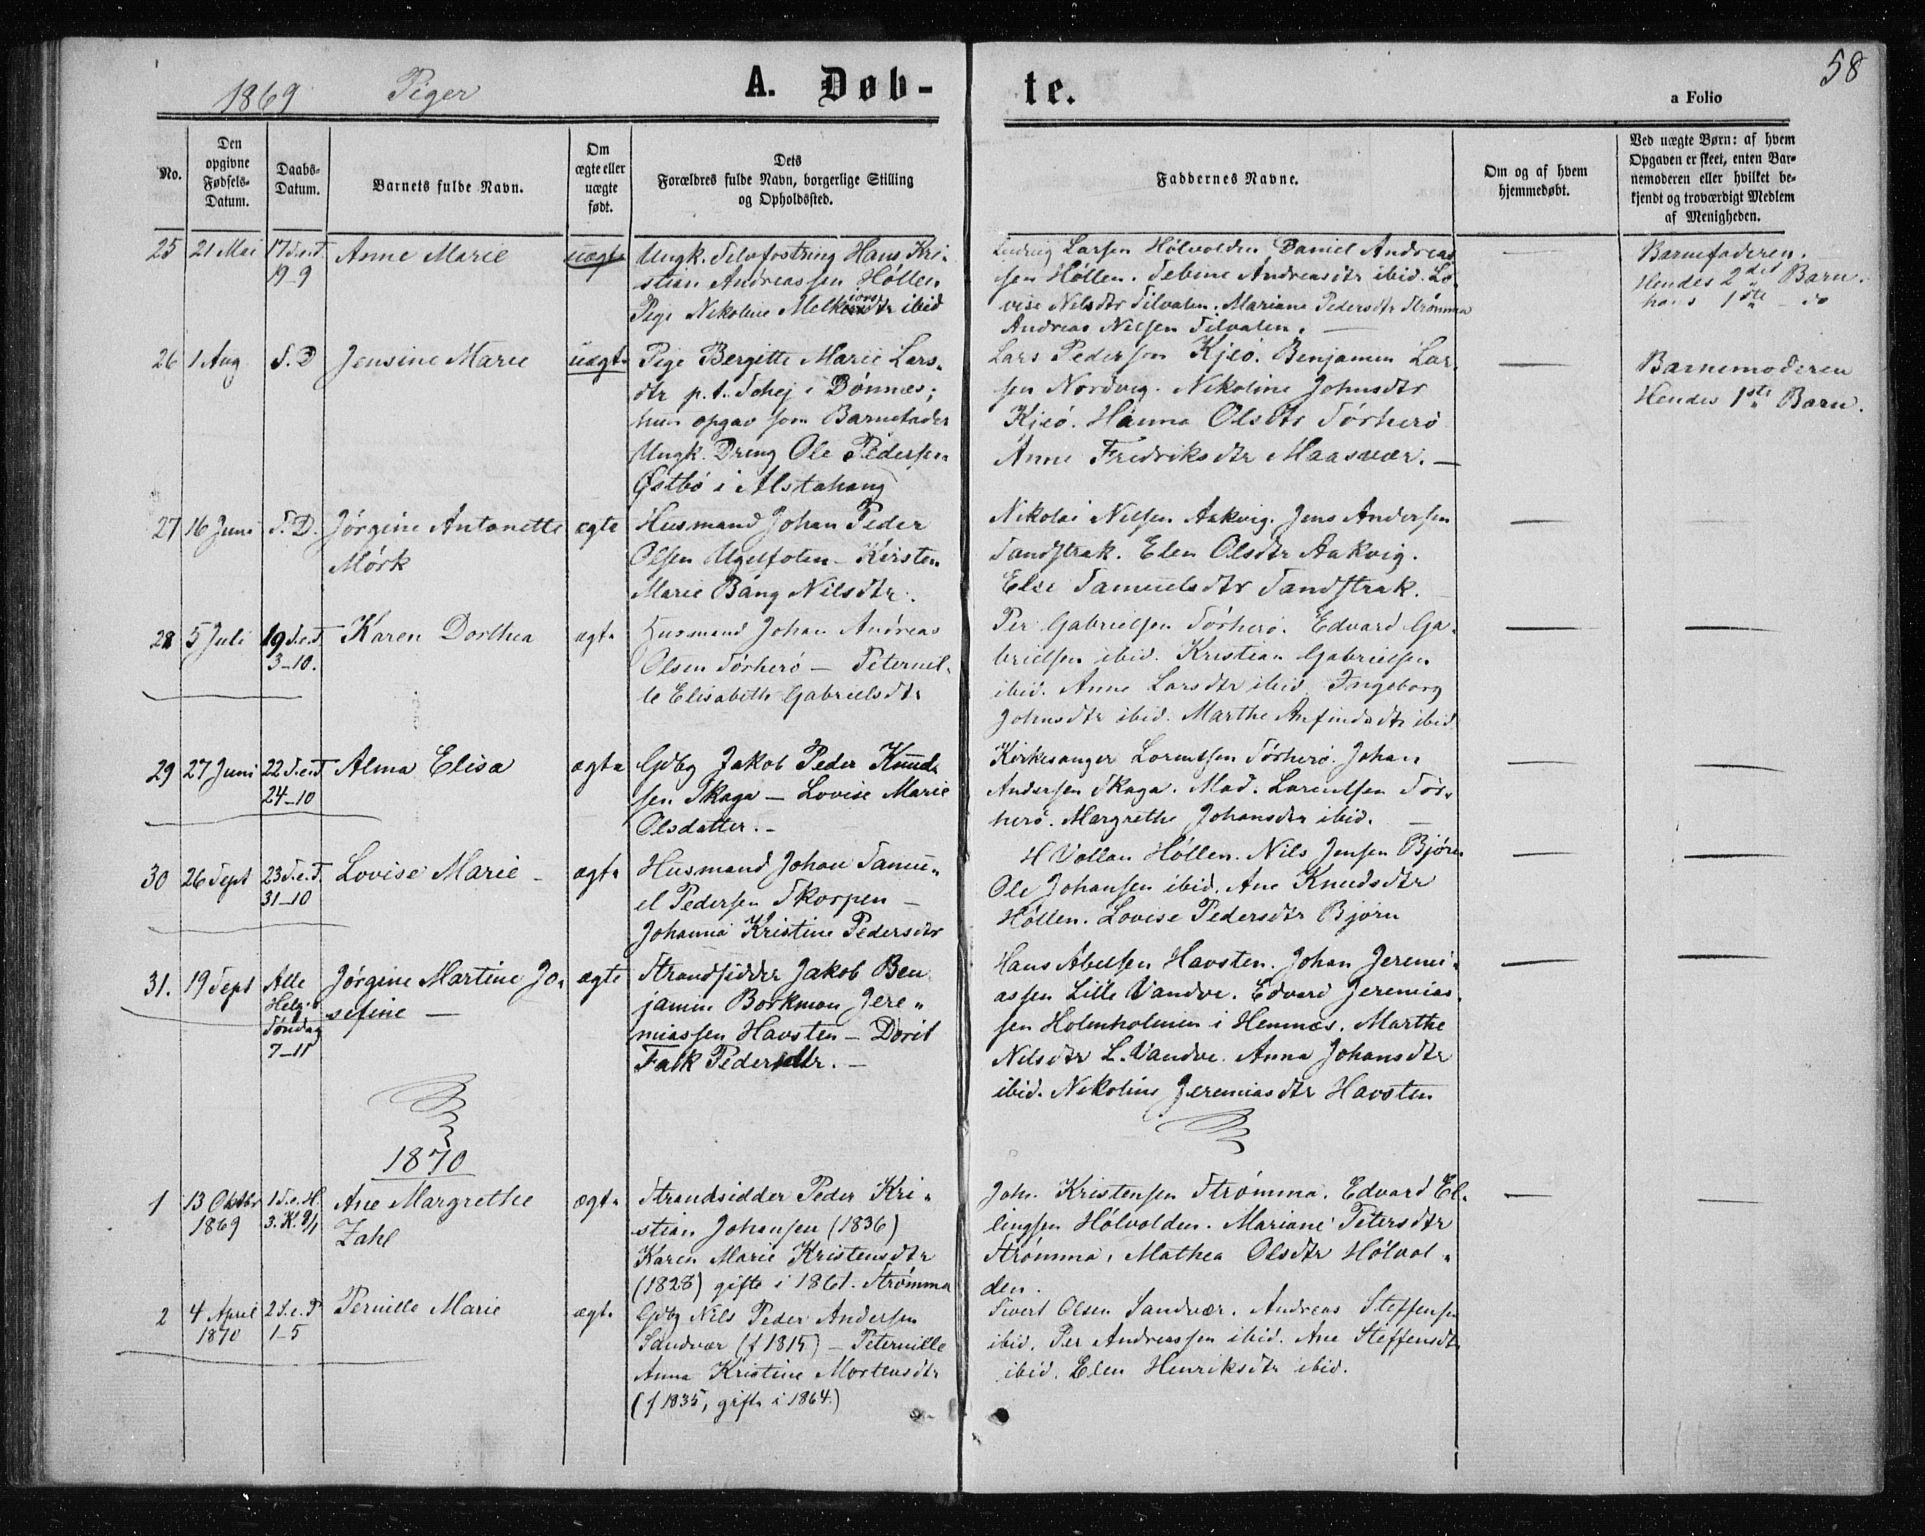 58
1869 Piger
A. Døb-
te.
a Folio
No.
Den
opgivne
Fødsels-
Datum.
Daabs-
Datum.
Barnets fulde Navn.
Om
ægte eller
uægte
født.
Dets
Forældres fulde Navn, borgerlige Stilling
og Opholdssted.
Faddernes Navne.
Om og af hvem
hjemmedøbt.
Ved uægte Børn: af hvem
Opgaven er skeet, enten Bar-
nemoderen eller hvilket be-
kjendt og troværdigt Medlem
af Menigheden.
25
21 Mai
17 S.e.T
19-9
Anne Marie
uægte
Ungk. Selvfostring Hans Kri-
stian Andreassen Høllen
Pige Nikoline Melkiorsdtr ibid
Ludvig Larsen Hølvolden Daniel Andreas
sen Høllen. Sebine Andreasdtr ibid. Lo-
vise Nelsdtr Tilvalen. Mariane Pedersdtr Strømma
Andreas Nelsen Tilvalen. —
Barnefaderen.
Hendes 2det Barn.
hans 1ste - do
26
1 Aug
S.D
Jensine Marie
uægte
Pige Bergitte Marie Lars-
dtr p.t. Schej i Dønnæs;
hun opgav som Barnefader
Ungk. Dreng Ole Pedersen
Østbø i Alstahaug
Lars Pedersen Kjeø. Benjamin Lar-
sen Nordvig. Nikoline Johnsdtr
Kjeø. Hanna Olsdtr Torherø
Anne Fredriksdtr Maasvær. —
Barnemoderen
Hendes 1ste Barn.
27
16 Juni
S.D.
Jørgine Antonette
Mørk
ægte
Husmand Johan Peder
Olsen Ugelfoten - Kirsten
Marie Bang Nilsdtr.
Nikolai Nelsen Aakvig. Jens Andersen
Sandstrak. Elen Olsdtr Aakvig.
Else Samuelsdtr Sandstrak.
28
5 Juli
19 S.e.T
3-10.
Karen Dorthea
ægte
Husmand Johan Andreas
Olsen Torherø - Peternil-
le Elisabeth Gabrielsdtr
Per Gabrielsen Torherø. Edvard Ga-
brielsen ibid. Kristian Gabrielsen
ibid. Anne Larsdtr ibid. Ingeborg
Johnsdtr ibid. Marthe Arfindsdtr ibid
29
27 Juni
22 S.e.T
24-10
Alma Elisa
ægte
Gdbg Jakob Peder Knud-
sen Skaga - Lovise Marie
Olsdatter. -
Kirkesanger Lorentsen Torherø. Johan
Andersen Skaga. Mad. Lorentsen Tor-
herø. Margrethe Johansdtr ibid.
30
26 Sept
23 S.e.T.
31-10
Lovise Marie -
ægte
Husmand Johan Samu-
el Pedersen Skorpen -
Johanna Kristine Pedersdtr
H Vollan Høllen. Nils Jensen Bjørn
Ole Johansen ibid. Ane Knudsdtr
Høllen. Lovise Pedersdtr Bjørn
31.
19 Sept
Alle
Helg.
Søndag
7-11
Jørgine Martine Jo-
sefine —
ægte
Strandsidder Jakob Ben
jamin Borkman Jere-
miassen Havsten - Dorit
Falk Pedersdtr. —
Hans Abelsen Havsten. Johan Jeremi-
assen Lille Vandve. Edvard Jeremias-
sen Holmholmen i Hemnæs. Marthe
Nelsdtr L. Vandve. Anna Johansdtr
ibid. Nikoline Jeremiasdtr Havsten
1870
1
13 Oktbr
1869
1 S.e.H.
3.K. 9/1
Ane Margrethe
Zahl
ægte
Strandsidder Peder Kri-
stian Johansen (1836)
Karen Marie Kristensdtr
(1828) gifte i 1861. Strømma
Joh. Kristensen Strømma. Edvard El-
lingsen Hølvolden. Mariane Petersdtr
Strømma, Mathea Olsdtr Hølvol-
den.
2
4 April
1870
2 S.e.P
1-5
Pernille Marie
ægte
Gdbg Nels Peder Andersen
Sandvær (f 1815) - Peternille
Anna Kristine Mortensdtr
(f 1835, gifte i 1864.)
Sivert Olsen Sandvær. Andreas Steffensen
ibid. Per Andreassen ibid. Ane Steffensdtr
ibid. Elen Henriksdtr ibid.